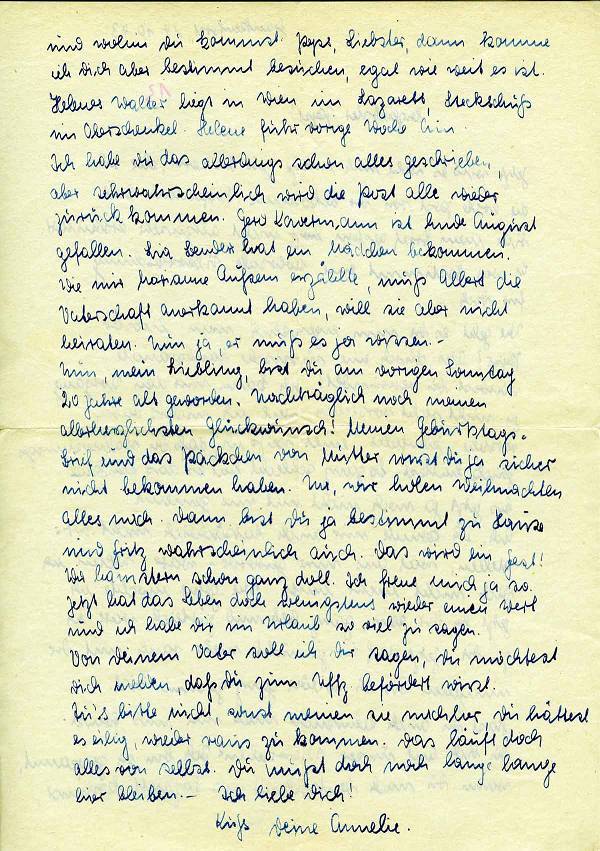 und wohin du kommst. Paps, Liebster, dann komme
ich dich aber bestimmt besuchen, egal wie weit es ist.
Helenes Walter liegt in Wien im Lazarett, Steckschuß
im Oberschenkel. Helene fuhr vorige Woche hin.
Ich habe dir das allerdings schon alles geschrieben,
aber sehrwahrscheinlich wird die Post alle wieder
zurück kommen. Gerd ist Ende August
gefallen. Bender hat ein Mädchen bekommen.
Wie mir Marianne Aufsem erzählte, muß Albert die
Vaterschaft anerkannt haben, will sie aber nicht
heiraten. Nun ja, er muß es ja wissen.-
Nun mein Liebling, bist du am vorigen Sonntag
20 Jahre alt geworden. Nachträglich noch meinen
allerherzlichsten Glückwunsch! Meinen Geburtstags-
brief und das Päckchen von Mutter wirst du ja sicher
nicht bekommen haben. Na, wir holen Weihnachten
alles nach. Dann bist du ja bestimmt zu Hause
und Fritz wahrscheinlich auch. Das wird ein Fest!
Wir hamstern schon ganz doll. Ich freue mich ja so.
Jetzt hat das Leben doch wenigstens wieder einen Wert
und ich habe dir im Urlaub so viel zu sagen.
Von deinem Vater soll ich dir sagen, du möchtest
dich melden, daß du zum Uffz befördert wirst.
Tu's bitte nicht, sonst meinen sie nachher, du hättest
es eilig, wieder raus zu kommen. Das läuft doch
alles von selbst. Du mußt doch noch lange lange
hier bleiben.- Ich liebe dich!
Kuß deine Annelie.